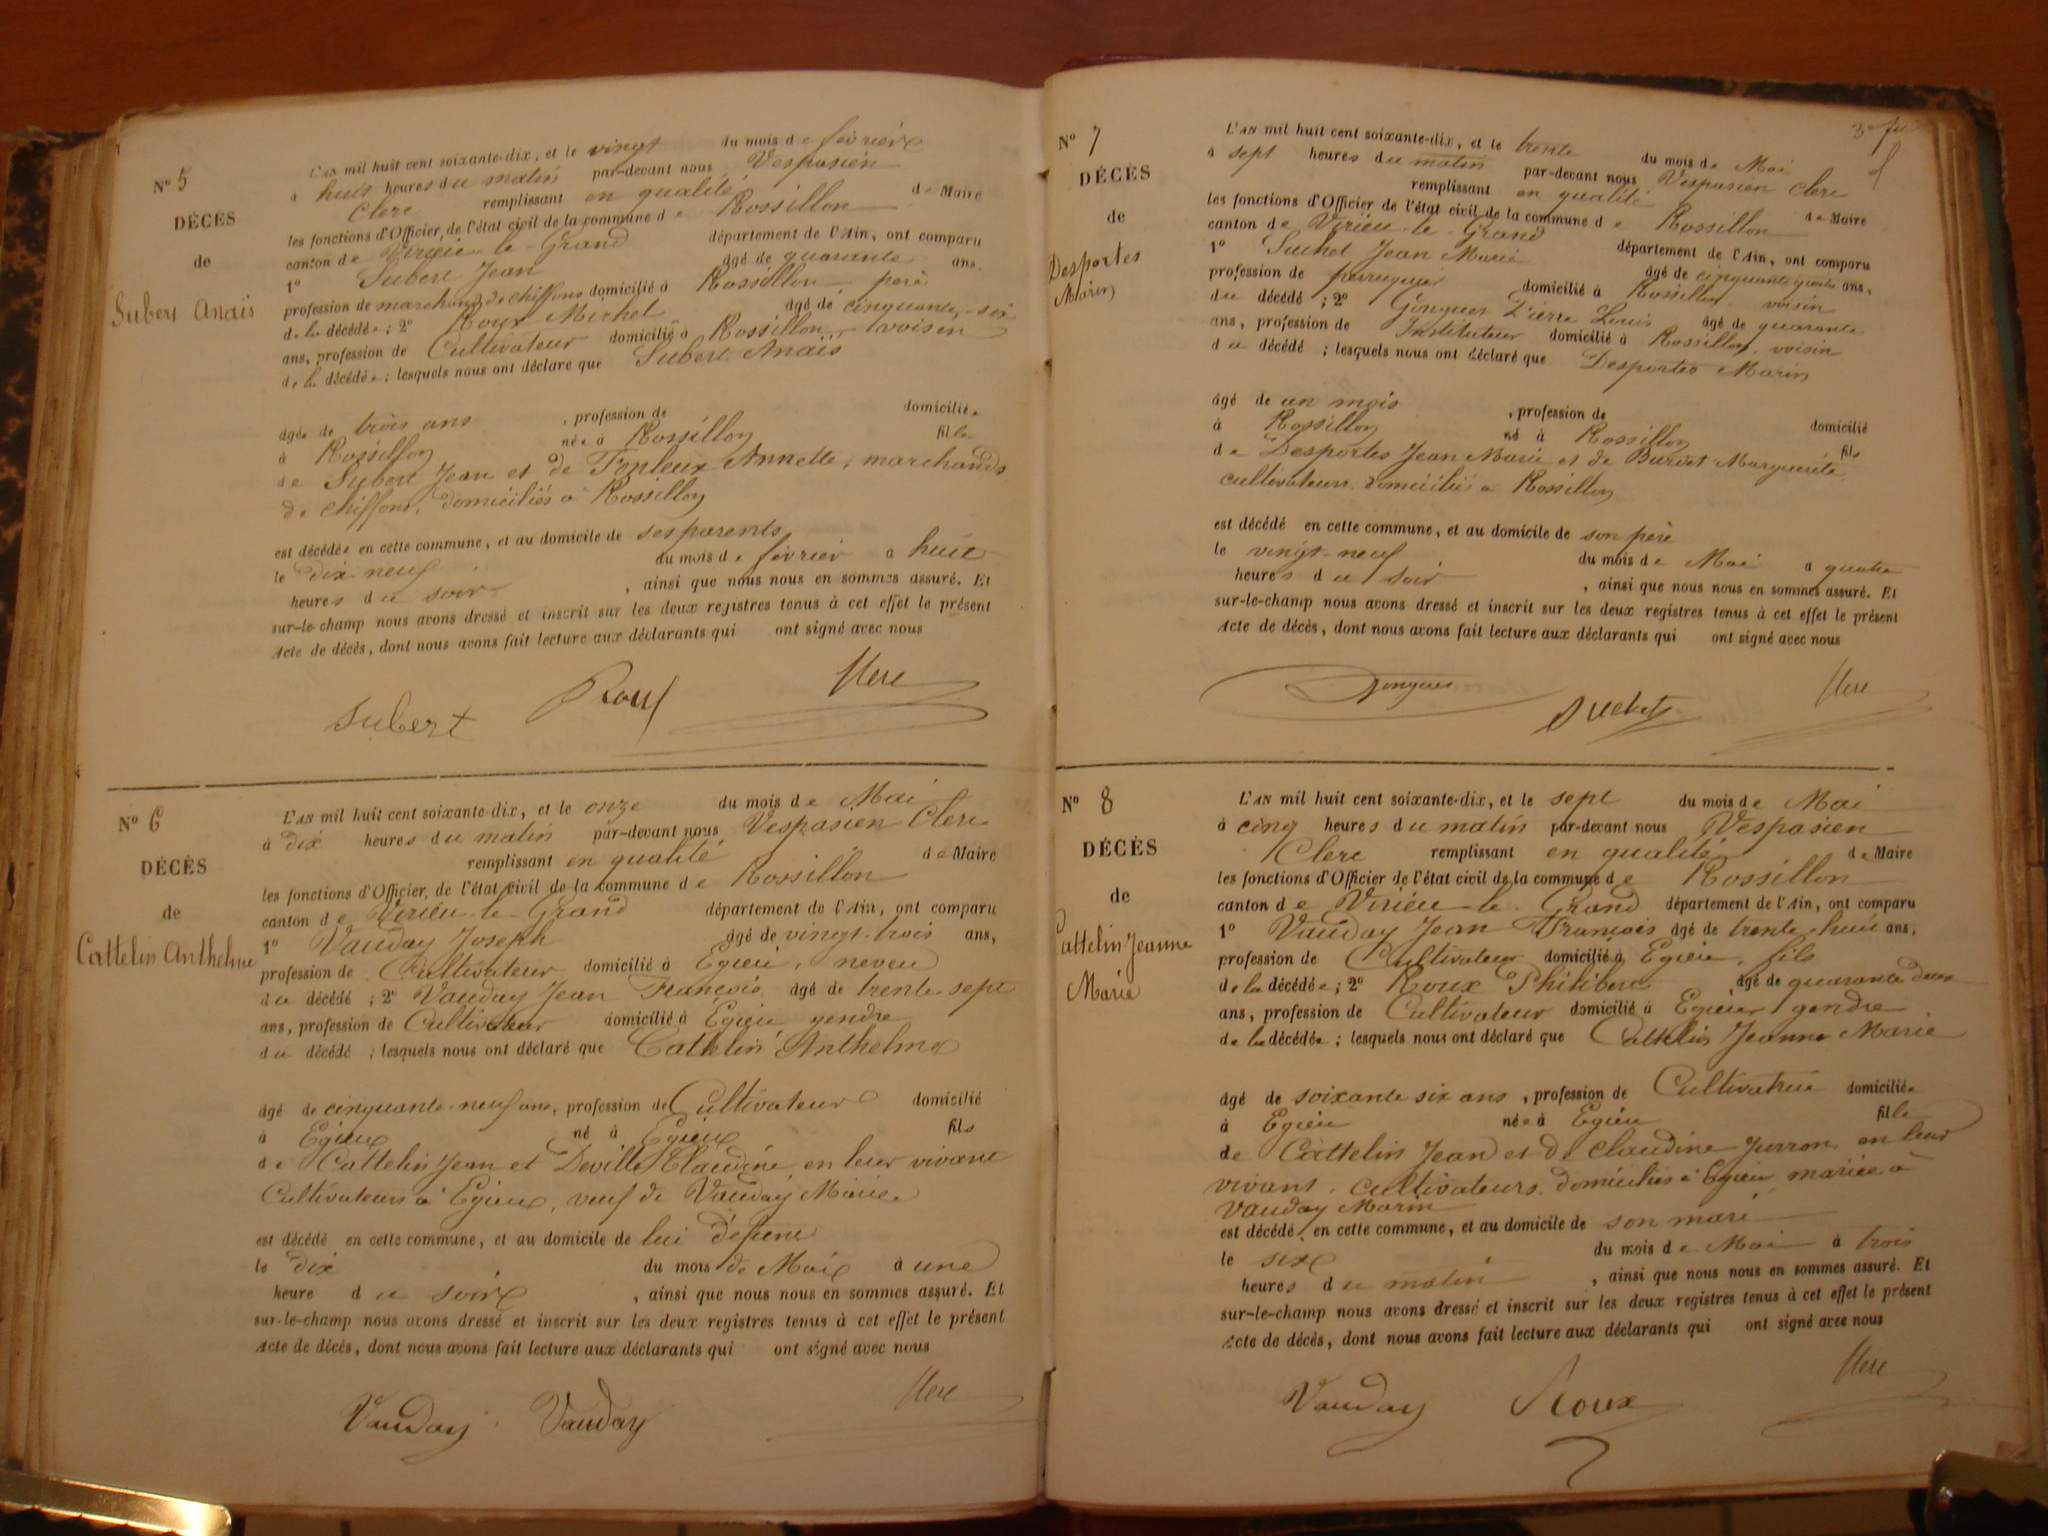 N° 5
DÉCÈS
de
Subert Anaïs
L'AN mil huit cent soixante-dix, et le vingt du mois de février
à huit heures du matin par-devant nous Vespasien
Clerc remplissant en qualité de Maire
les fonctions d'Officier de l'état civil de la commune de Rossillon
canton de Virieu-le-Grand département de l'Ain, ont comparu
1° Subert Jean âgé de quarante ans,
profession de marchand de chiffons domicilié à Rossillon père
de la décédée ; 2° Roux Michel âgé de cinquante-six
ans, profession de Cultivateur domicilié à Rossillon, voisin
de la décédée ; lesquels nous ont déclaré que Subert Anaïs
âgée de trois ans , profession de domiciliée
à Rossillon née à Rossillon fille
de Subert Jean et de Annette, marchands
de chiffons, domiciliés à Rossillon
est décédée en cette commune, et au domicile de ses parents
le dix-neuf du mois de février à huit
heures du soir , ainsi que nous nous en sommes assuré. Et
sur-le-champ nous avons dressé et inscrit sur les deux registres tenus à cet effet le présent
Acte de décès, dont nous avons fait lecture aux déclarants qui ont signé avec nous
Subert Roux Clerc
N° 6
DÉCÈS
de
Cattelin Anthelme
L'AN mil huit cent soixante-dix, et le onze du mois de Mai
à dix heures du matin par-devant nous Vespasien Clerc
remplissant en qualité de Maire
les fonctions d'Officier de l'état civil de la commune de Rossillon
canton de Virieu-le-Grand département de l'Ain, ont comparu
1° Vauday Joseph âgé de vingt-trois ans,
profession de Cultivateur domicilié à Egieu, neveu
du décédé ; 2° Vauday Jean François âgé de trente-sept
ans, profession de Cultivateur domicilié à Egieu gendre
du décédé ; lesquels nous ont déclaré que Cattelin Anthelme
âgé de cinquante-neuf ans, profession de Cultivateur domicilié
à Egieu né à Egieu fils
de Cattelin Jean et Deville Claudine en leur vivant
Cultivateurs à Egieu, veuf de Vauday Marie
est décédé en cette commune, et au domicile de lui
le dix du mois de Mai à une
heure du soir , ainsi que nous nous en sommes assuré. Et
sur-le-champ nous avons dressé et inscrit sur les deux registres tenus à cet effet le présent
Acte de décès, dont nous avons fait lecture aux déclarants qui ont signé avec nous
Vauday Vauday Clerc
N° 7
DÉCÈS
de
Desportes
Marin
L'AN mil huit cent soixante-dix, et le trente du mois de Mai
à sept heures du matin par-devant nous Vespasien Clerc
remplissant en qualité de Maire
les fonctions d'Officier de l'état civil de la commune de Rossillon
canton de Virieu-le-Grand département de l'Ain, ont comparu
1° Suchet Jean Marie âgé de ans,
profession de perruquier domicilié à Rossillon voisin
du décédé ; 2° Gonguet Pierre Louis âgé de quarante
ans, profession de Instituteur domicilié à Rossillon, voisin
du décédé ; lesquels nous ont déclaré que Desportes Marin
âgé de un mois , profession de domicilié
à Rossillon né à Rossillon fils
de Desportes Jean Marie et de Burdet Marguerite,
cultivateurs domiciliés à Rossillon
est décédé en cette commune, et au domicile de son père
le vingt-neuf du mois de Mai à quatre
heures du soir , ainsi que nous nous en sommes assuré. Et
sur-le-champ nous avons dressé et inscrit sur les deux registres tenus à cet effet le présent
Acte de décès, dont nous avons fait lecture aux déclarants qui ont signé avec nous
Suchet Clerc
N° 8
DÉCÈS
de
Cattelin Jeanne
Marie
L'AN mil huit cent soixante-dix, et le sept du mois de Mai
à cinq heures du matin par-devant nous Vespasien
Clerc remplissant en qualité de Maire
les fonctions d'Officier de l'état civil de la commune de Rossillon
canton de Virieu-le-Grand département de l'Ain, ont comparu
1° Vauday Jean François âgé de trente-huit ans,
profession de Cultivateur domicilié à Egieu, fils
de la décédée ; 2° Roux Philibert âgé de quarante deux
ans, profession de Cultivateur domicilié à Egieu gendre
de la décédée ; lesquels nous ont déclaré que Cattelin Jeanne Marie
âgé de soixante six ans , profession de Cultivatrice domiciliée
à Egieu née à Egieu fille
de Cattelin Jean et de Claudine Jurron en leur
vivant cultivateurs domiciliés à Egieu, mariée à
Vauday Marin
est décédé en cette commune, et au domicile de son mari
le six du mois de Mai à trois
heures du matin , ainsi que nous nous en sommes assuré. Et
sur-le-champ nous avons dressé et inscrit sur les deux registres tenus à cet effet le présent
Acte de décès, dont nous avons fait lecture aux déclarants qui ont signé avec nous
Vauday Roux Clerc